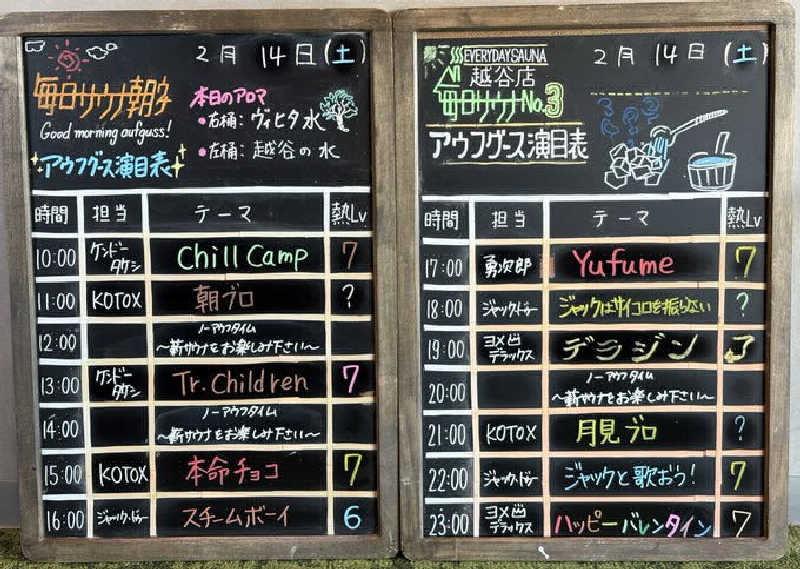 2月 14日(土)
毎日サウナ朝ウ
Good morning aufguss!
アウフグース演目表
本日のアロマ
・右桶: ヴィヒタ水
・左桶: 越谷の水
時間 担当 テーマ 熱Lv
10:00 ケンドータケシ Chill Camp 7
11:00 KOTOX 朝ブロ ?
12:00 ノーアウフタイム
〜薪サウナをお楽しみ下さい〜
13:00 ケンドータケシ Tr.Children 7
14:00 ノーアウフタイム
〜薪サウナをお楽しみ下さい〜
15:00 KOTOX 本命チョコ 7
16:00 スチームボーイ 6
EVERYDAY SAUNA
越谷店
毎日サウナNo.3
アウフグース演目表
2月 14日(土)
時間 担当 テーマ 熱Lv
17:00 勇次郎 Yufume 7
18:00 ジャックはサイコロを振らない ?
19:00 デラックス デラジン
20:00 ノーアウフタイム
〜薪サウナをお楽しみ下さい〜
21:00 KOTOX 月見ブロ ?
22:00 ジャックと歌おう! 7
23:00 デラックス ハッピーバレンタイン 7